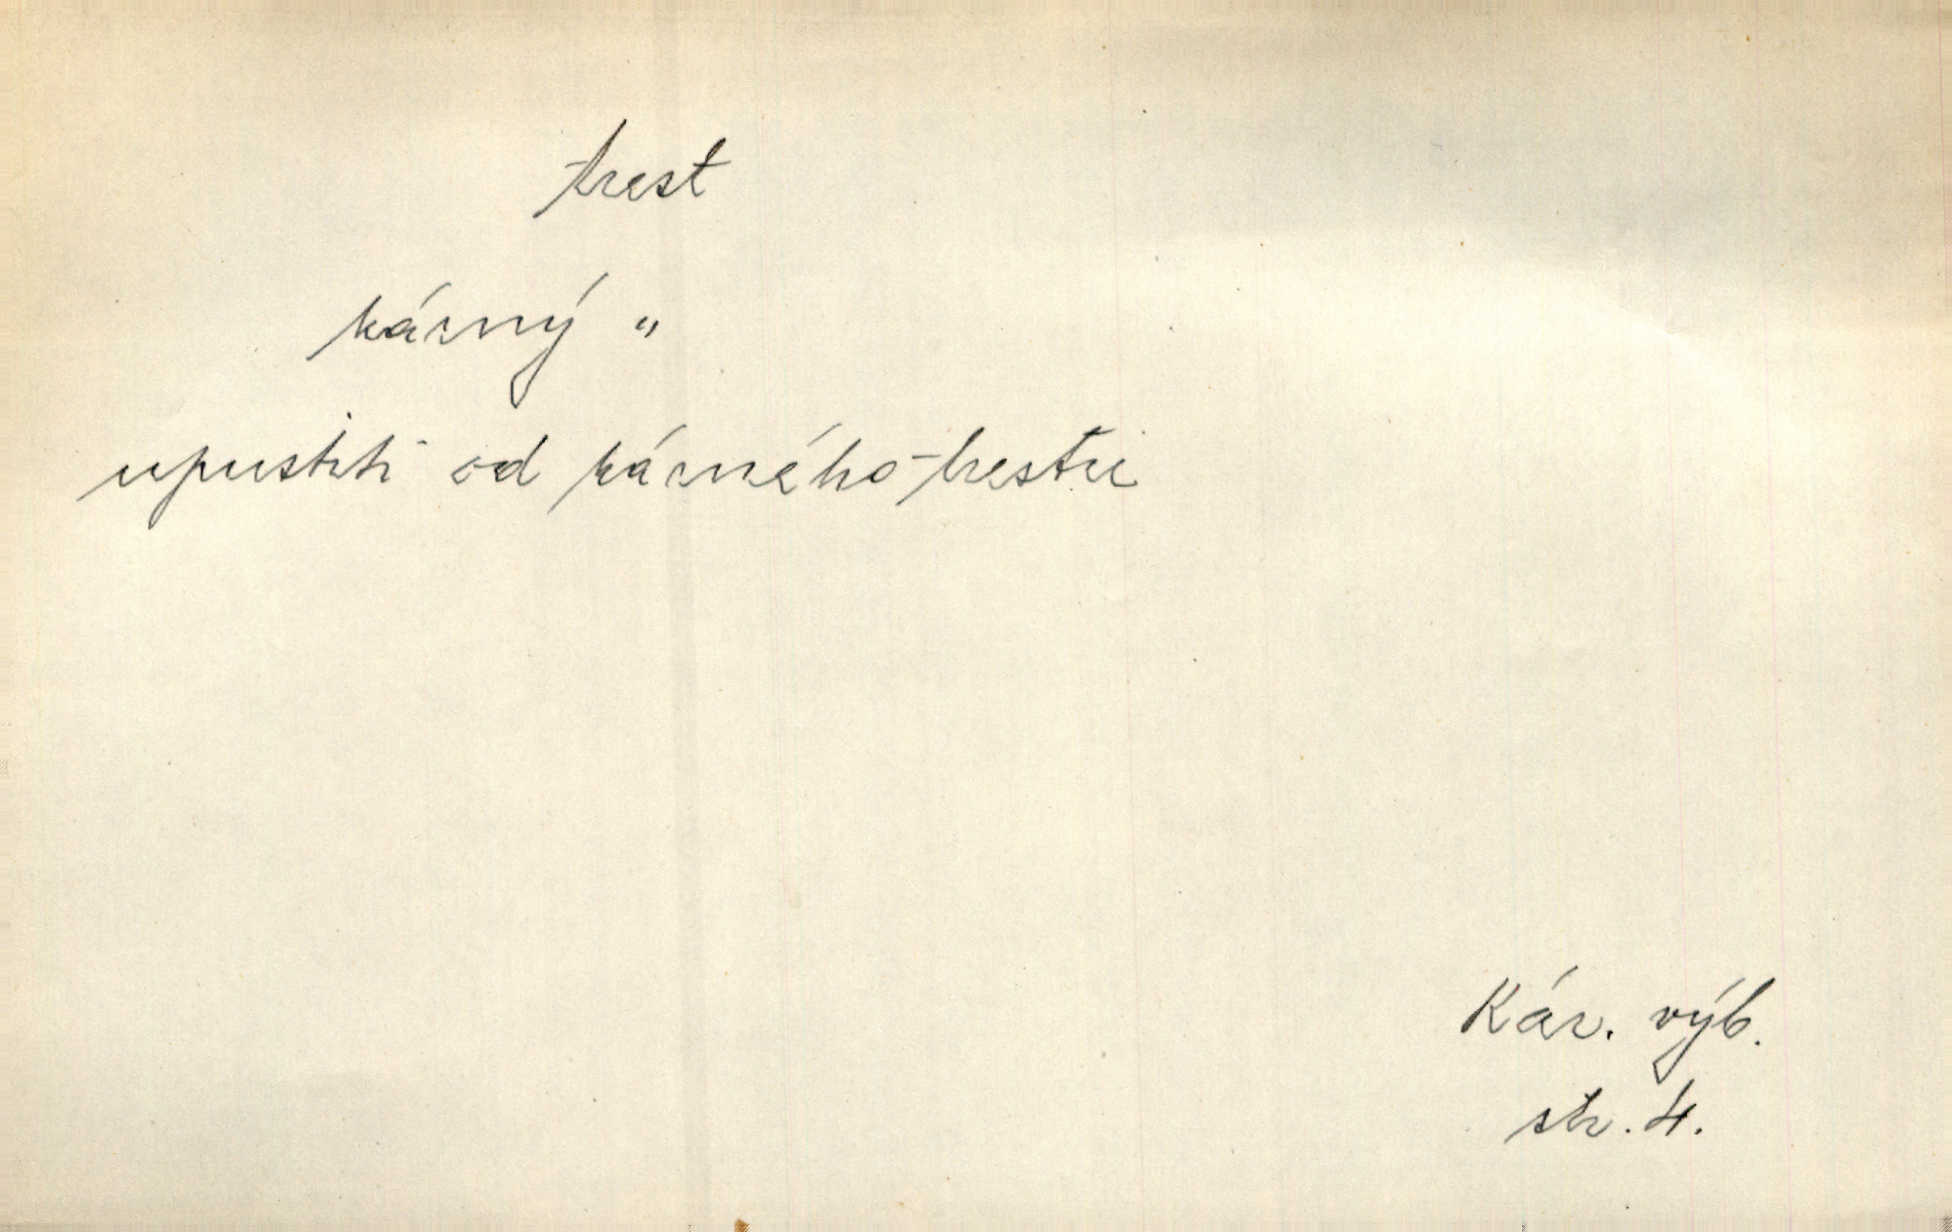 trest
kárný "
upustiti od kárného trestu
Kár. výb.
str. 4.